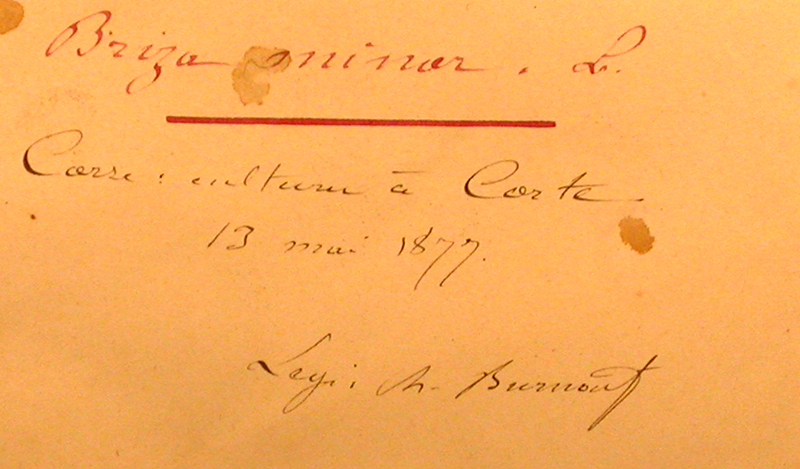 Briza minor. L.
Corse: cultures à Corte
13 mai 1877.
Legi: Ch. Burnouf